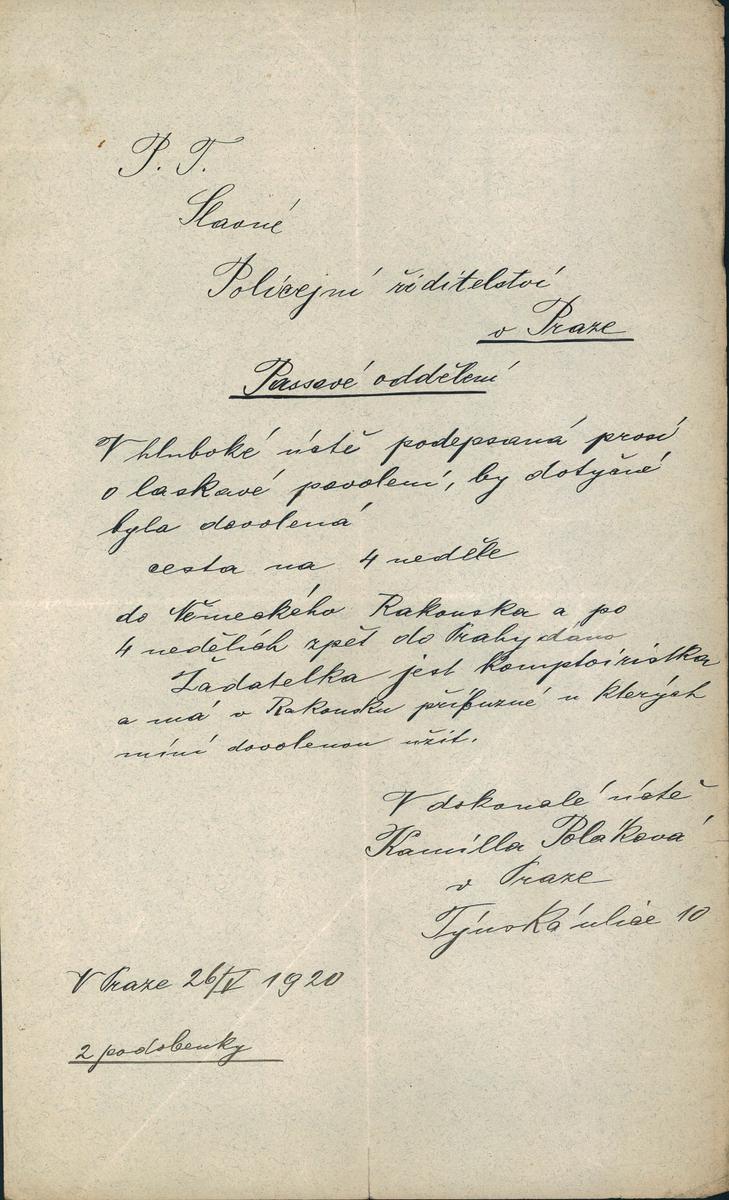 P. T.
Slavné
Policejní řiditelství
v Praze
Passové oddělení
V hluboké úctě podepsaná prosí
o laskavé povolení, by dotyčné
byla dovolená
cesta na 4 neděle
do Německého Rakouska a po
4 nedělích zpět do Prahy
Žadatelka jest komptoiristka
a má v Rakousku příbuzné u kterých
míní dovolenou užít.
V dokonalé úctě
Kamilla Poláková
v Praze
Týnská ulice 10
V Praze 26/V 1920
2 podobenky